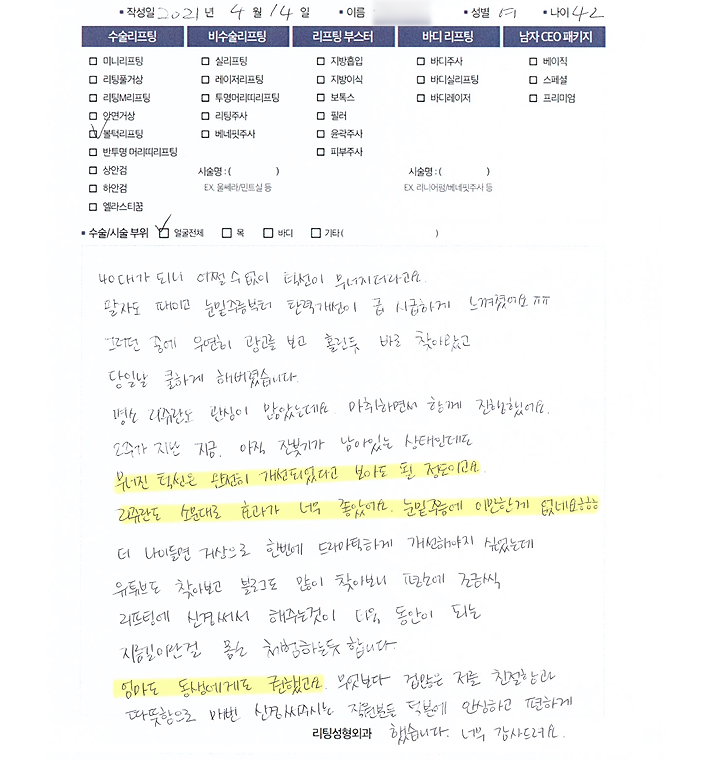 ▪ 작성일 2021년 4월 14일 ▪ 이름 ▪ 성별 여 ▪ 나이 42
수술리프팅 비수술리프팅 리프팅 부스터 바디 리프팅 남자 CEO 패키지
□ 미니리프팅 □ 실리프팅 □ 지방흡입 □ 바디주사 □ 베이직
□ 리팅풀거상 □ 레이저리프팅 □ 지방이식 □ 바디실리프팅 □ 스페셜
□ 리팅M리프팅 □ 투명머리띠리프팅 □ 보톡스 □ 바디레이저 □ 프리미엄
□ 안면거상 □ 리팅주사 □ 필러
☑ 볼턱리프팅 □ 베네핏주사 □ 윤곽주사
□ 반투명 머리띠리프팅 □ 피부주사
□ 상안검 시술명 : ( ) 시술명 : ( )
□ 하안검 EX. 울쎄라/민트실 등 EX. 리니어펌/베네핏주사 등
□ 엘라스티꿈
▪ 수술/시술 부위 ☑ 얼굴전체 □ 목 □ 바디 □ 기타 ( )
40대가 되니 어쩔 수 없이 턱선이 무너지더라고요.
팔자도 패이고 눈밑주름부터 탄력개선이 급 시급하게 느껴졌어요 ㅠㅠ
그러던 중에 우연히 광고를 보고 홀린듯 바로 찾아왔고
당일날 쿨하게 해버렸습니다.
평소 리쥬란도 관심이 많았는데요. 마취하면서 함께 진행했어요.
2주가 지난 지금. 아직 잔붓기가 남아있는 상태인데도
무너진 턱선은 완전히 개선되었다고 보아도 될 정도이고요.
리쥬란도 소문대로 효과가 너무 좋았어요. 눈밑주름에 이만한게 없네요ㅎㅎㅎ
더 나이들면 거상으로 한번에 드라마틱하게 개선해야지 싶었는데
유튜브도 찾아보고 블로그도 많이 찾아보니 평소에 조금씩
리프팅에 신경써서 해주는것이 더욱 동안이 되는
지름길이란걸 몸소 체험하는듯 합니다.
엄마도 동생에게도 권했고요. 무엇보다 겁많은 저를 친절함과
따뜻함으로 매번 신경써주시는 직원분들 덕분에 안심하고 편하게
리팅성형외과 했습니다. 너무 감사드려요.